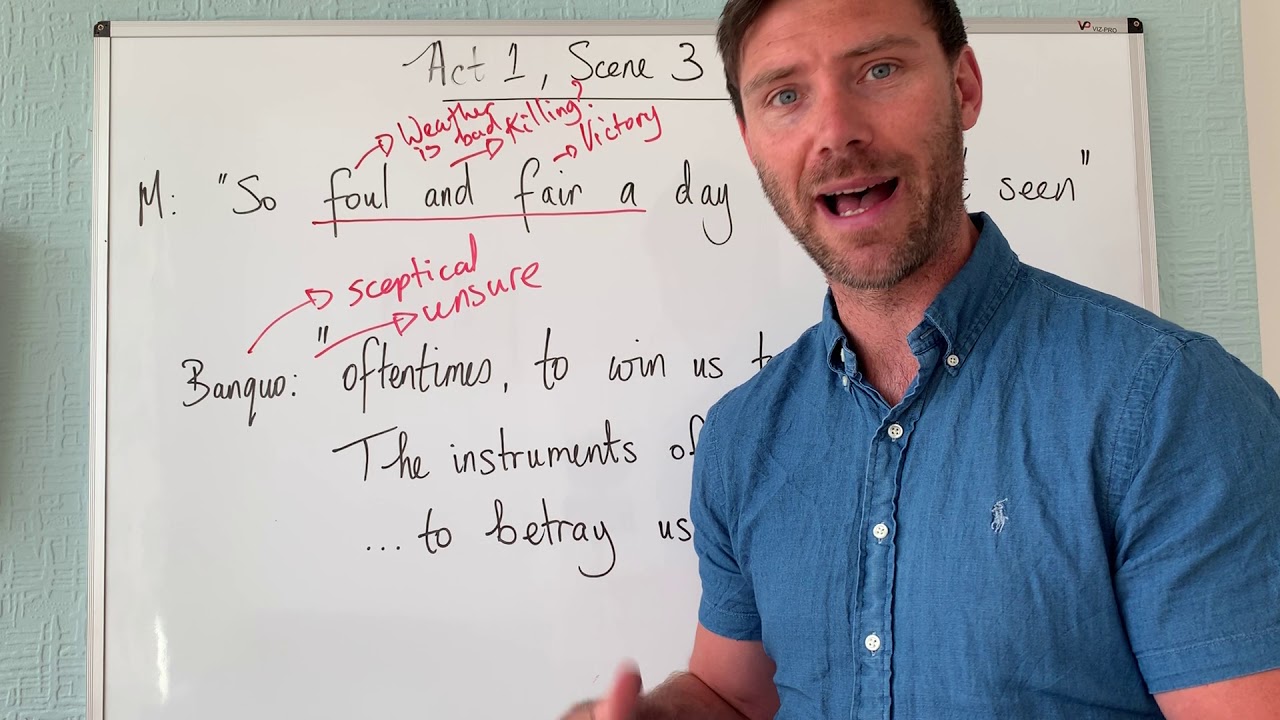 VIZ-PRO
Act 1, Scene 3
Weather is bad
Killing?
Victory
M: "So foul and fair a day seen"
sceptical
unsure
Banquo: "oftentimes, to win us
The instruments of
... to betray us